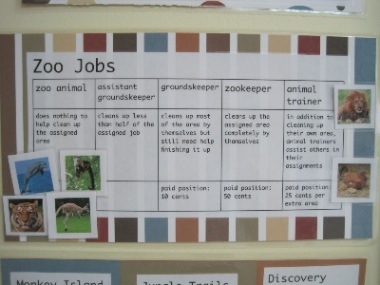 Zoo Jobs
zoo animal
assistant
groundskeeper
groundskeeper
zookeeper
animal
trainer
does nothing to
help clean up
the assigned
area
cleans up less
than half of the
assigned job
cleans up most
of the area by
themselves but
still need help
finishing it up
cleans up the
assigned area
completely by
themselves
in addition to
cleaning up
their own area,
animal trainers
assist others in
their
assignments
paid position:
10 cents
paid position:
50 cents
paid position:
25 cents per
extra area
Monkey Island
Jungle Trails
Discovery